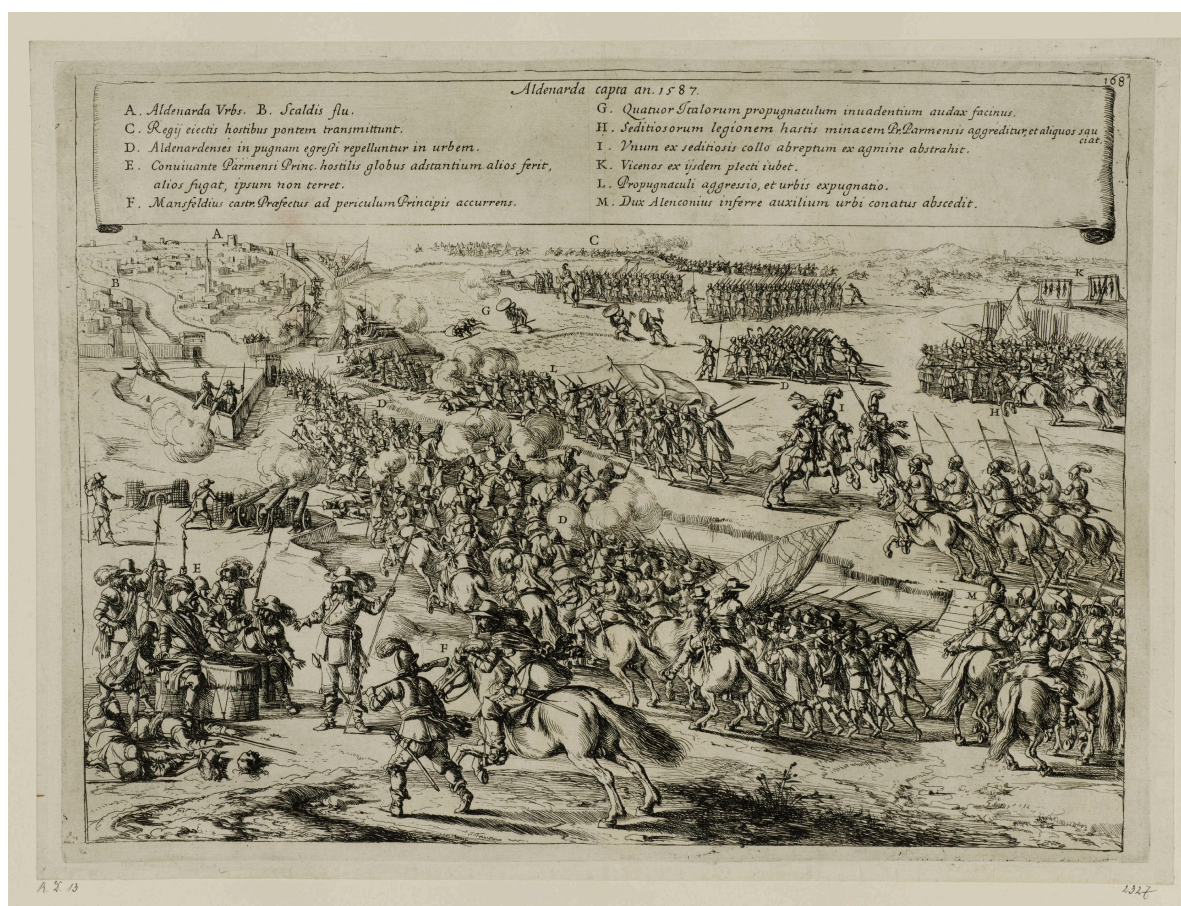 168
Aldenarda capta an. 1587.
A. Aldenarda Vrbs. B. Scaldis flu.
C. Regij eiectis hostibus pontem transmittunt.
D. Aldenardenses in pugnam egreßi repelluntur in urbem.
E. Conuiuante Parmensi Princ. hostilis globus adstantium alios ferit,
alios fugat, ipsum non terret.
F. Mansfeldius castr. Præfectus ad periculum Principis accurrens.
G. Quatuor Italorum propugnaculum inuadentium audax facinus.
H. Seditiosorum legionem hastis minacem Pr. Parmensis aggreditur, et aliquos sau
ciat.
I. Vnum ex seditiosis collo abreptum ex agmine abstrahit.
K. Vicenos ex ijsdem plecti iubet.
L. Propugnaculi aggressio, et urbis expugnatio.
M. Dux Alenconius inferre auxilium urbi conatus abscedit.
A
C
B
K
G
L
L
D
D
I
H
D
E
M
F
2327